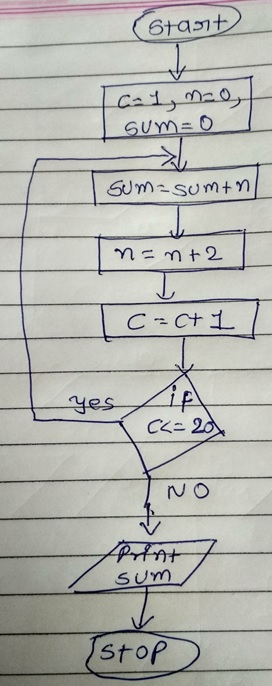 Start
c=1, n=0,
sum=0
sum=sum+n
n=n+2
C=C+1
if
C<=20
yes
NO
Print
sum
Stop